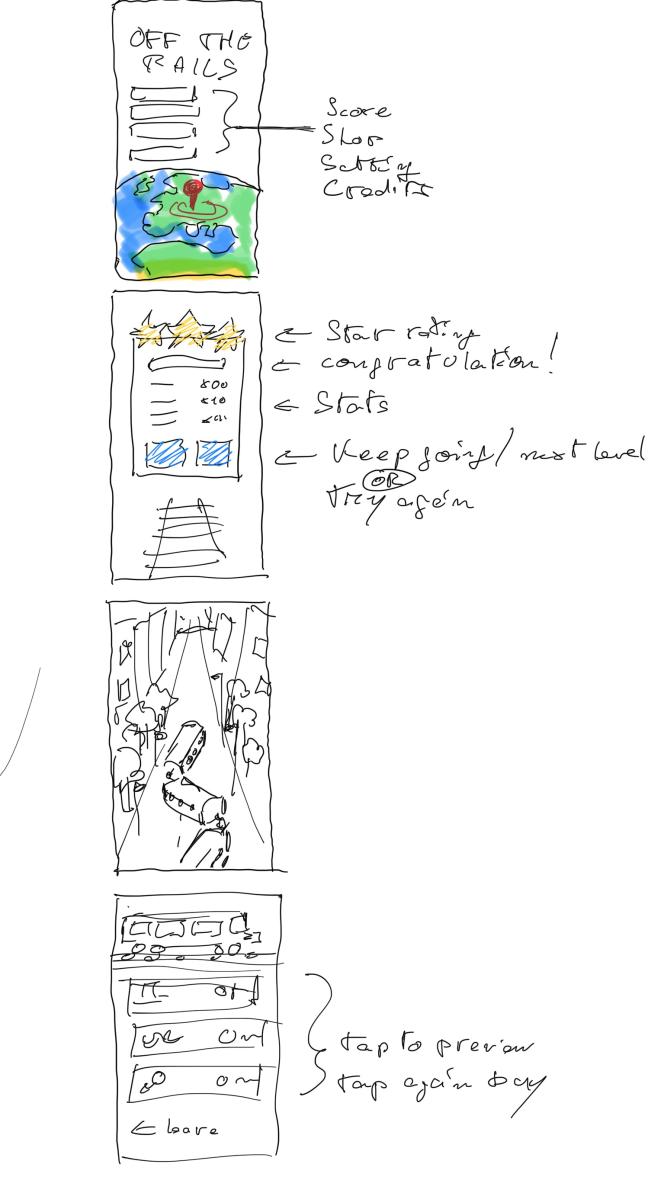 OFF THE
RAILS
Score
Shop
Setting
Credits
← Star rating
← congratulation!
← Stats
← Keep going/next level
OR
try again
tap to preview
tap again buy
← leave